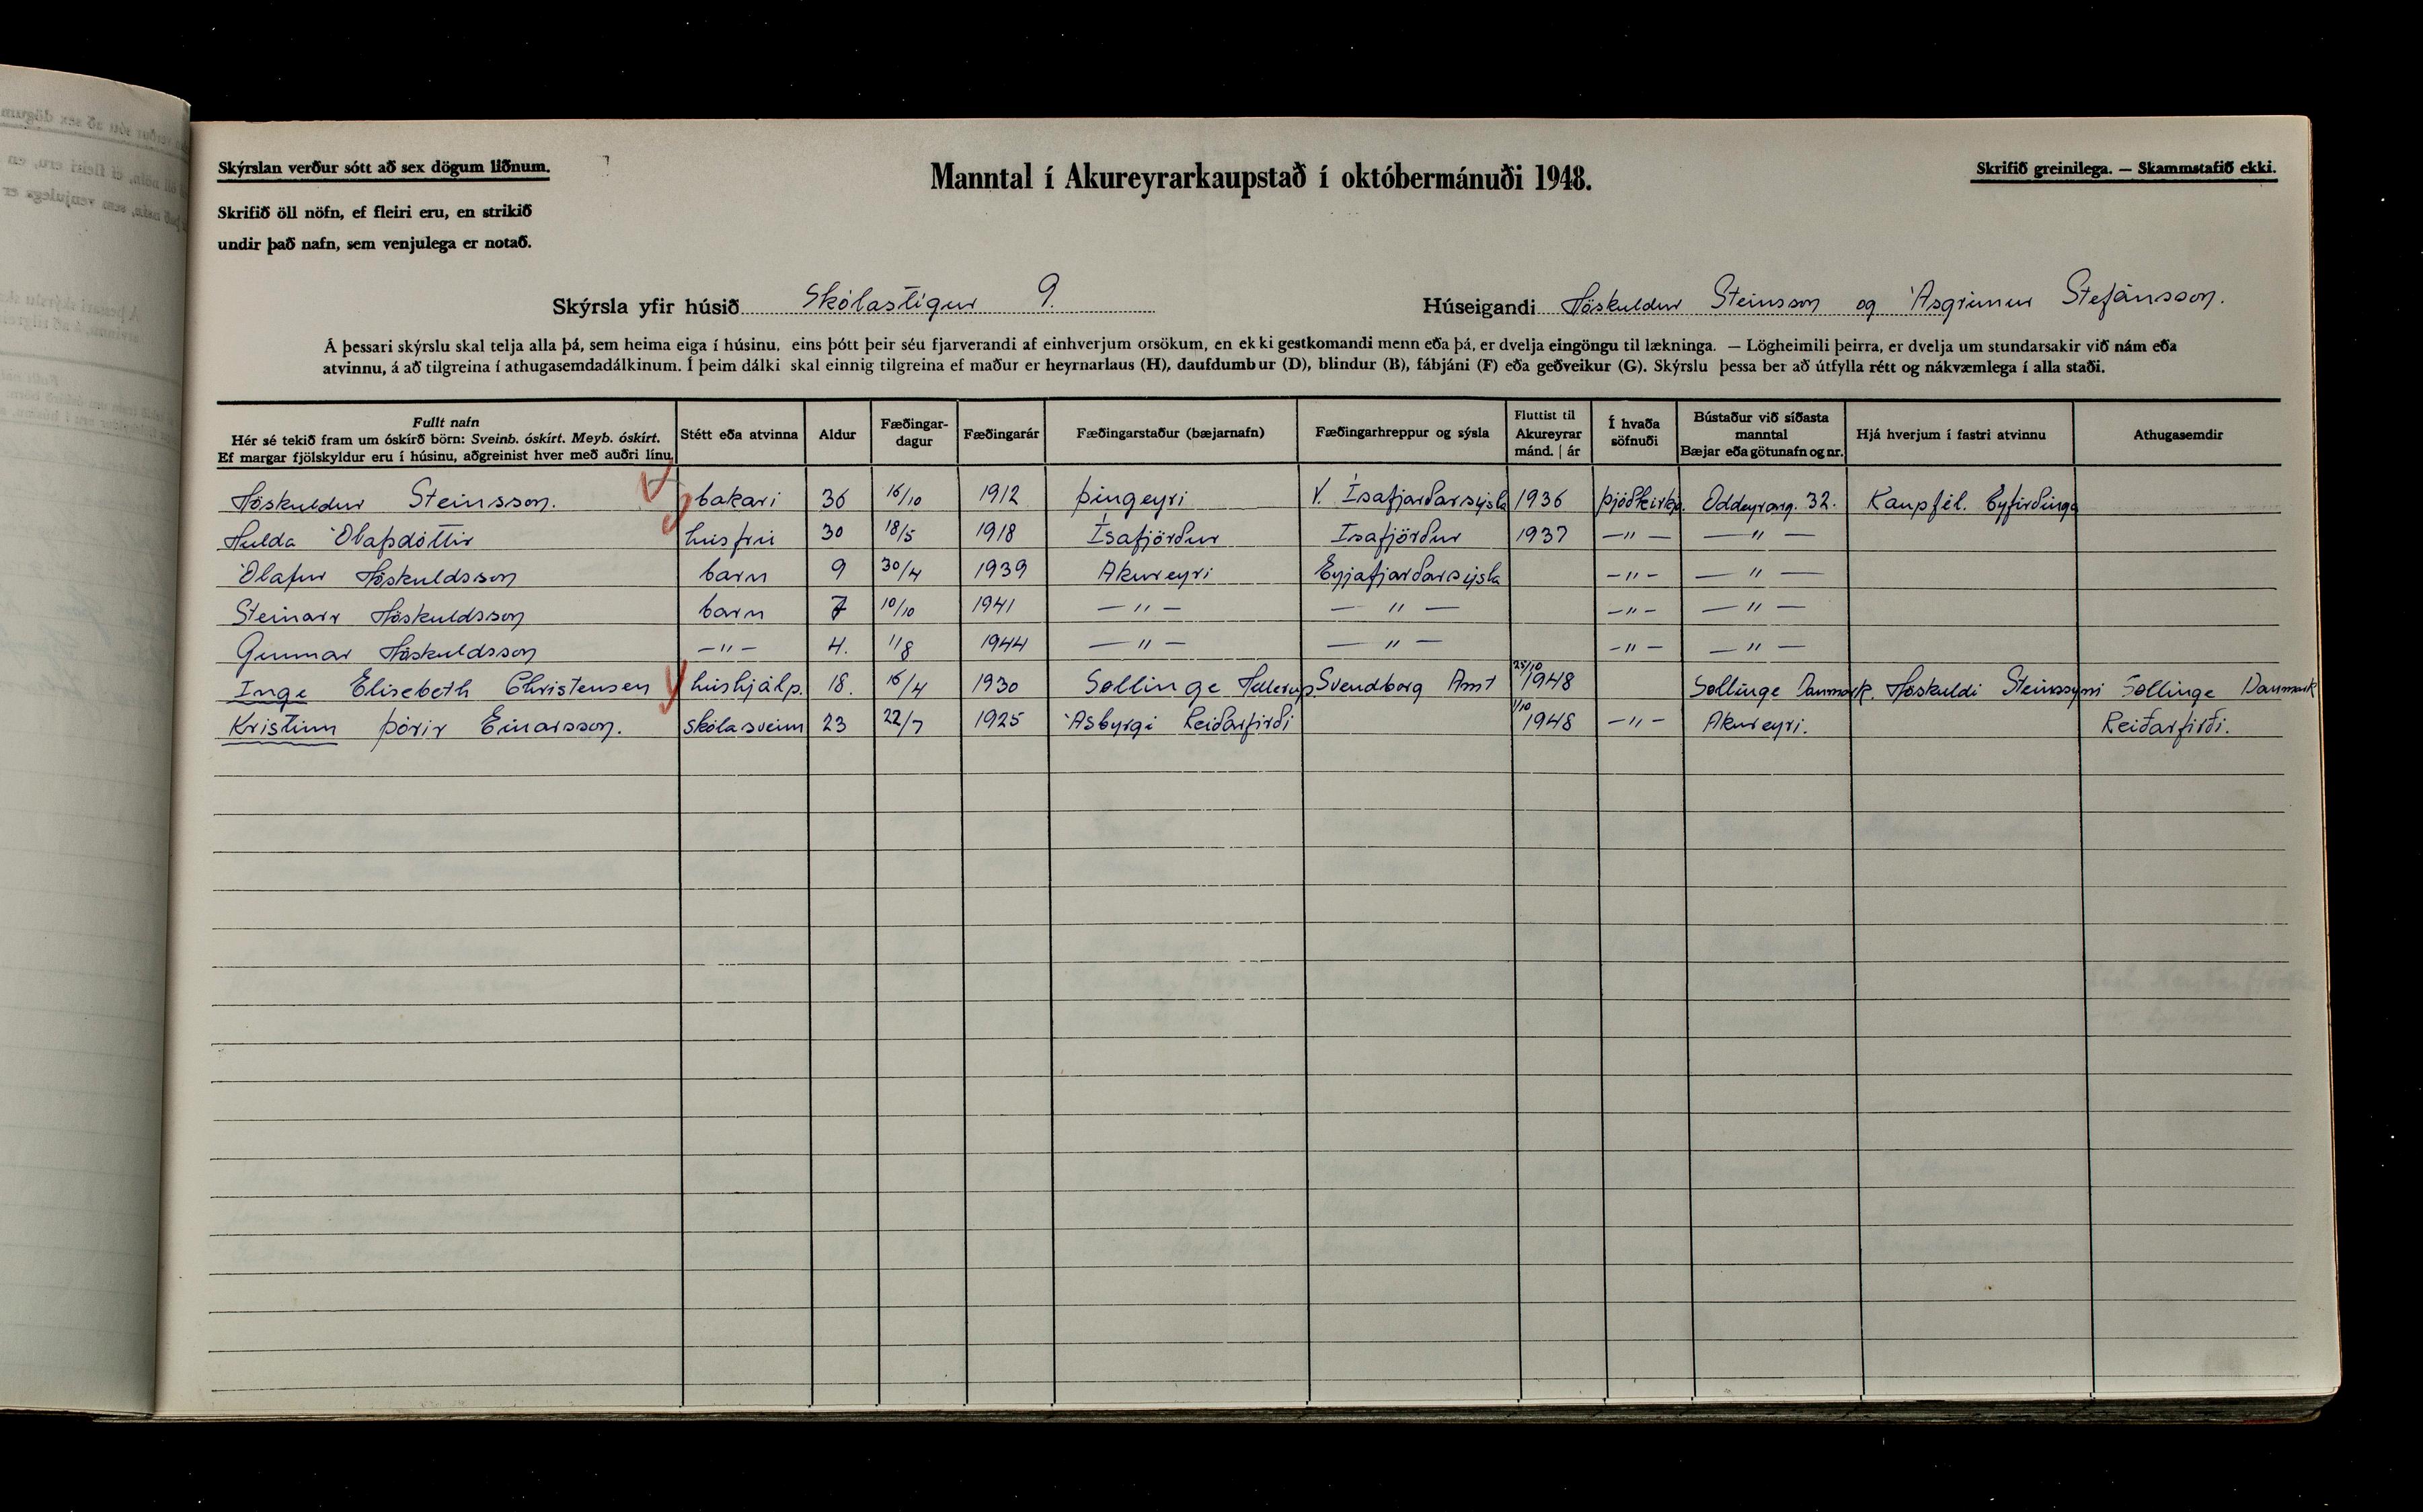 Skýrslan verður sótt að sex dögum liðnum.
Manntal í Akureyrarkaupstað í októbermánuði 1948.
Skrifið greinilega. — Skammstafið ekki.
Skrifið öll nöfn, ef fleiri eru, en strikið
undir það nafn, sem venjulega er notað.
Skýrsla yfir húsið Skólastígur 9. Húseigandi Höskuldur Steinsson og Ásgrímur Stefánsson.
Á þessari skýrslu skal telja alla þá, sem heima eiga í húsinu, eins þótt þeir séu fjarverandi af einhverjum orsökum, en ekki gestkomandi menn eða þá, er dvelja eingöngu til lækninga. — Lögheimili þeirra, er dvelja um stundarsakir við nám eða
atvinnu, á að tilgreina í athugasemdadálkinum. Í þeim dálki skal einnig tilgreina ef maður er heyrnarlaus (H), daufdumbur (D), blindur (B), fábjáni (F) eða geðveikur (G). Skýrslu þessa ber að útfylla rétt og nákvæmlega í alla staði.
Fullt nafn
Hér sé tekið fram um óskírð börn: Sveinb. óskírt. Meyb. óskírt.
Ef margar fjölskyldur eru í húsinu, aðgreinist hver með auðri línu.
Stétt eða atvinna
Aldur
Fæðingar-
dagur
Fæðingarár
Fæðingarstaður (bæjarnafn)
Fæðingarhreppur og sýsla
Fluttist til
Akureyrar
mánd. | ár
Í hvaða
söfnuði
Bústaður við síðasta
manntal
Bæjar eða götunafn og nr.
Hjá hverjum í fastri atvinnu
Athugasemdir
Höskuldur Steinsson. bakari 36 16/10 1912 Þingeyri V. Ísafjarðarsýsla 1936 Þjóðkirkj. Oddeyrarg. 32. Kaupfél. Eyfirðinga
Hulda Ólafsdóttir húsfrú 30 18/5 1918 Ísafjörður Ísafjörður 1937 —"— —"—
Ólafur Höskuldsson barn 9 30/4 1939 Akureyri Eyjafjarðarsýsla —"— —"—
Steinarr Höskuldsson barn 7 10/10 1941 —"— —"— —"— —"—
Gunnar Höskuldsson —"— 4. 1944 —"— —"— —"— —"—
Inge Elisebeth Christensen húshjálp. 18. 16/4 1930 Sollinge Hellerup Svendborg Amt 25/10 1948 Sollinge Danmark. Höskuldi Steinssyni Sollinge Danmark
Kristinn Þórir Einarsson. skólasveinn 23 22/7 1925 Ásbyrgi Reiðarfirði 1/10 1948 —"— Akureyri. Reiðarfirði.